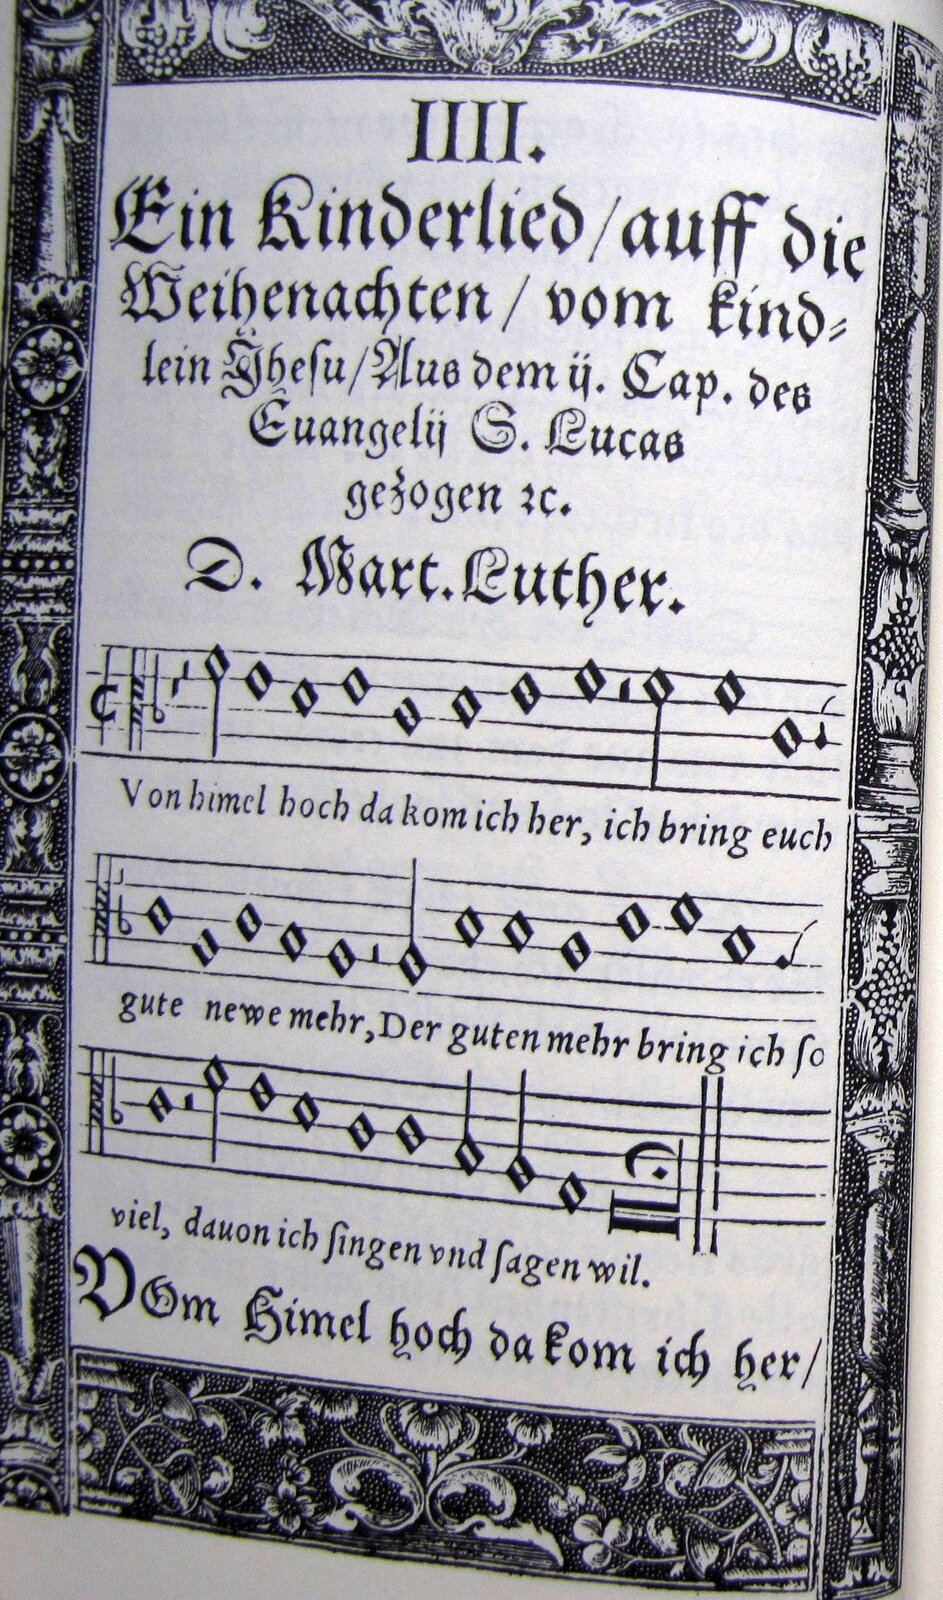 IIII.
Ein Kinderlied / auff die
Weihenachten / vom kind⸗
lein Jhesu / Aus dem ij. Cap. des
Euangelij S. Lucas
gezogen ꝛc.
D. Mart. Luther.
Von himel hoch da kom ich her, ich bring euch
gute newe mehr, Der guten mehr bring ich ſo
viel, dauon ich ſingen vnd ſagen wil.
VOm Himel hoch da kom ich her /